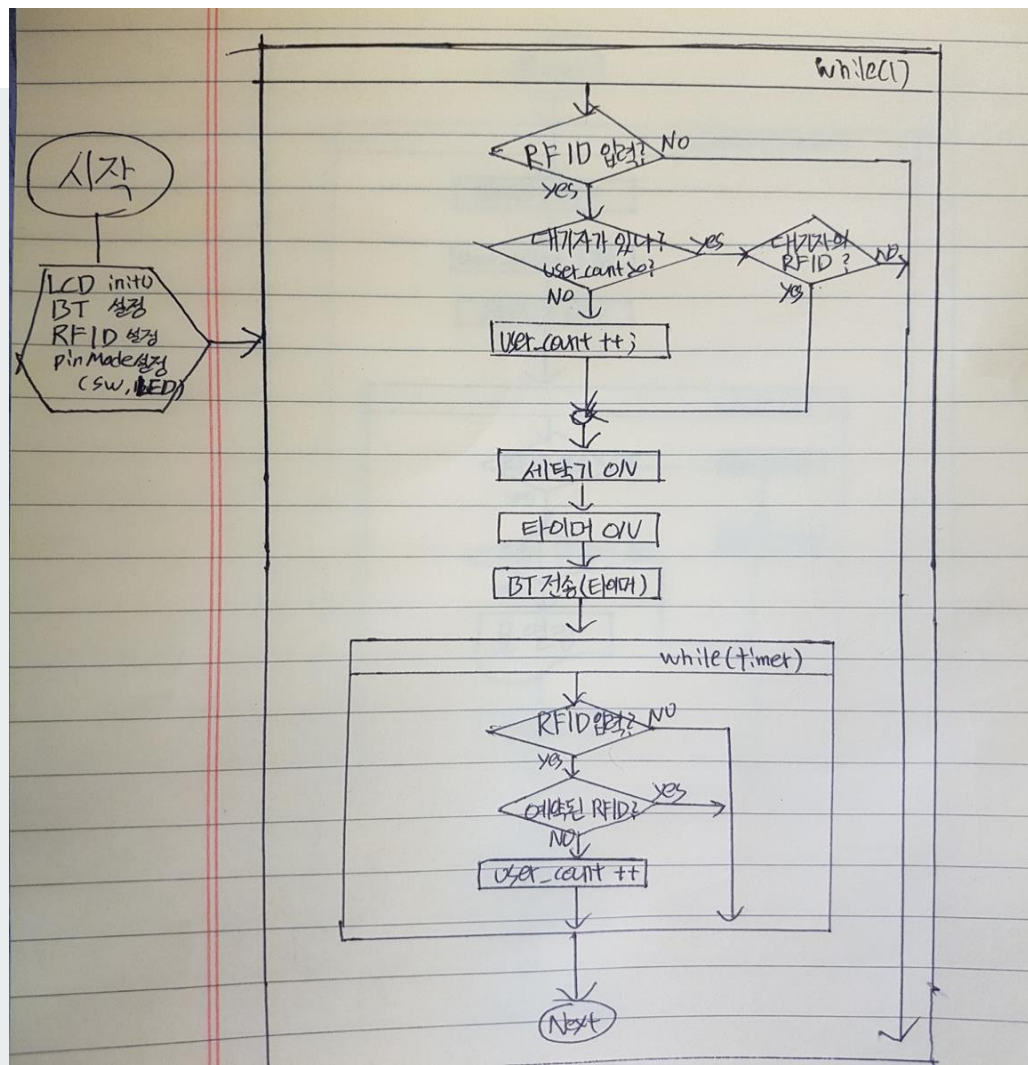 while(1)
시작
LCD init()
BT 설정
RFID 설정
pinMode설정
(SW, LED)
RFID 입력?
NO
yes
대기자가 있나?
user_count>0?
yes
NO
대기자의
RFID?
NO
yes
user_count ++;
세탁기 ON
타이머 ON
BT 전송(타이머)
while(timer)
RFID입력?
NO
yes
예약된 RFID?
yes
NO
user_count ++
Next